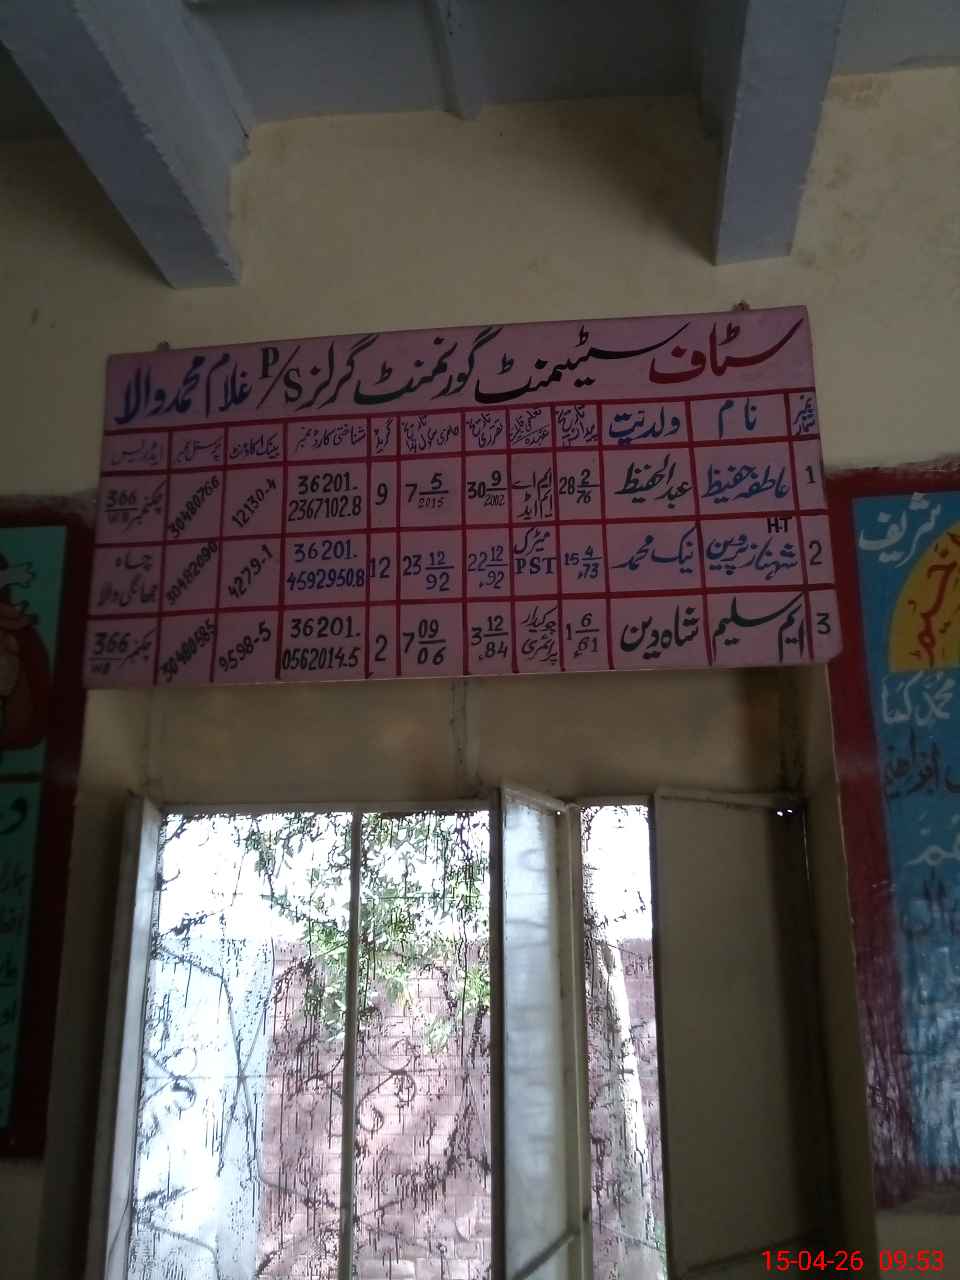 سٹاف سٹیٹمنٹ گورنمنٹ گرلز P/S غلام محمد والا
نمبر شمار نام ولدیت تاریخ پیدائش تعلیمی قابلیت عہدہ تاریخ تقرری گریڈ شناختی کارڈ نمبر بینک اکاؤنٹ پرسنل نمبر ایڈریس
1 عاطفہ حفیظ عبدالحفیظ 28 2/76 ایم اے ایم ایڈ 30 9/2002 7 5/2015 9 36201. 2367102.8 12130-4 30480766 چکنمبر 366/WB
2 شہناز پروین H.T نیک محمد 15 4/73 میٹرک PST 22 12/92 23 12/92 12 36201. 4592950.8 4279-1 30482690 چاہ جھانگی والا
3 ایم سلیم شاہ دین 1 6/61 چوکیدار پرائمری 3 12/84 7 09/06 2 36201. 0562014.5 9598-5 30480585 چکنمبر 366/WB
شریف
محمدؐ کما
15-04-26 09:53